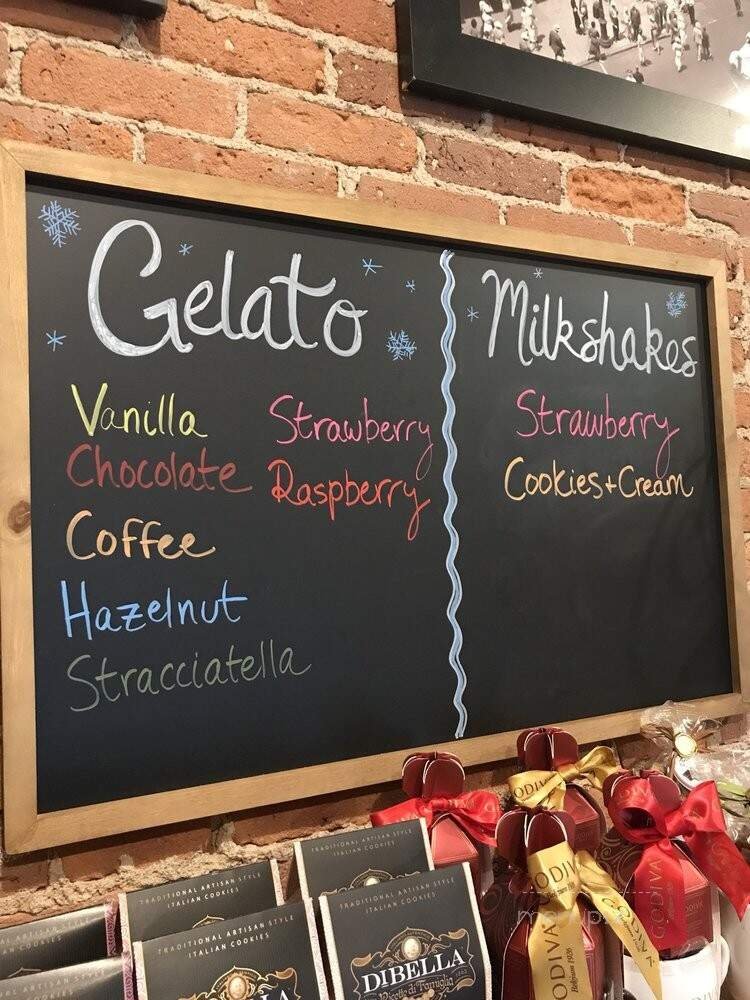 Gelato
Vanilla
Chocolate
Coffee
Hazelnut
Stracciatella
Strawberry
Raspberry
Milkshakes
Strawberry
Cookies+Cream
TRADITIONAL ARTISAN STYLE
ITALIAN COOKIES
TRADITIONAL ARTISAN STYLE
ITALIAN COOKIES
TRADITIONAL ARTISAN STYLE
ITALIAN COOKIES
TRADITIONAL ARTISAN STYLE
ITALIAN COOKIES
DIBELLA
Ricetta di Famiglia
GODIVA
GODIVA
Belgium 1926
GODIVA